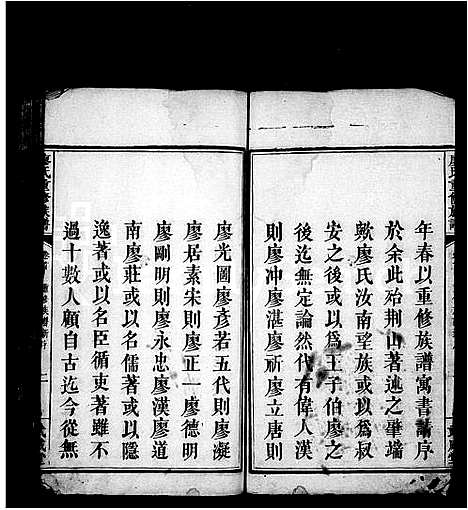 廖氏重修族譜
年春以重修族譜寓書請序
於余此殆荊山著述之肇端
歟廖氏汝南望族或以為叔
安之後或以爲王子伯廖之
後迄無定論然代有偉人漢
則廖冲廖湛廖祈廖立唐則
廖光圖廖彥若五代則廖凝
廖居素宋則廖正一廖德明
廖剛明則廖永忠廖漢廖道
南廖莊或以名儒著或以隱
逸著或以名臣循吏著雖不
過十數人顧自古迄今從無
廖氏重修族譜
二